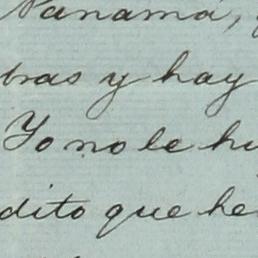 Panamá,
bras y hay
Yo no le hu
dito que he